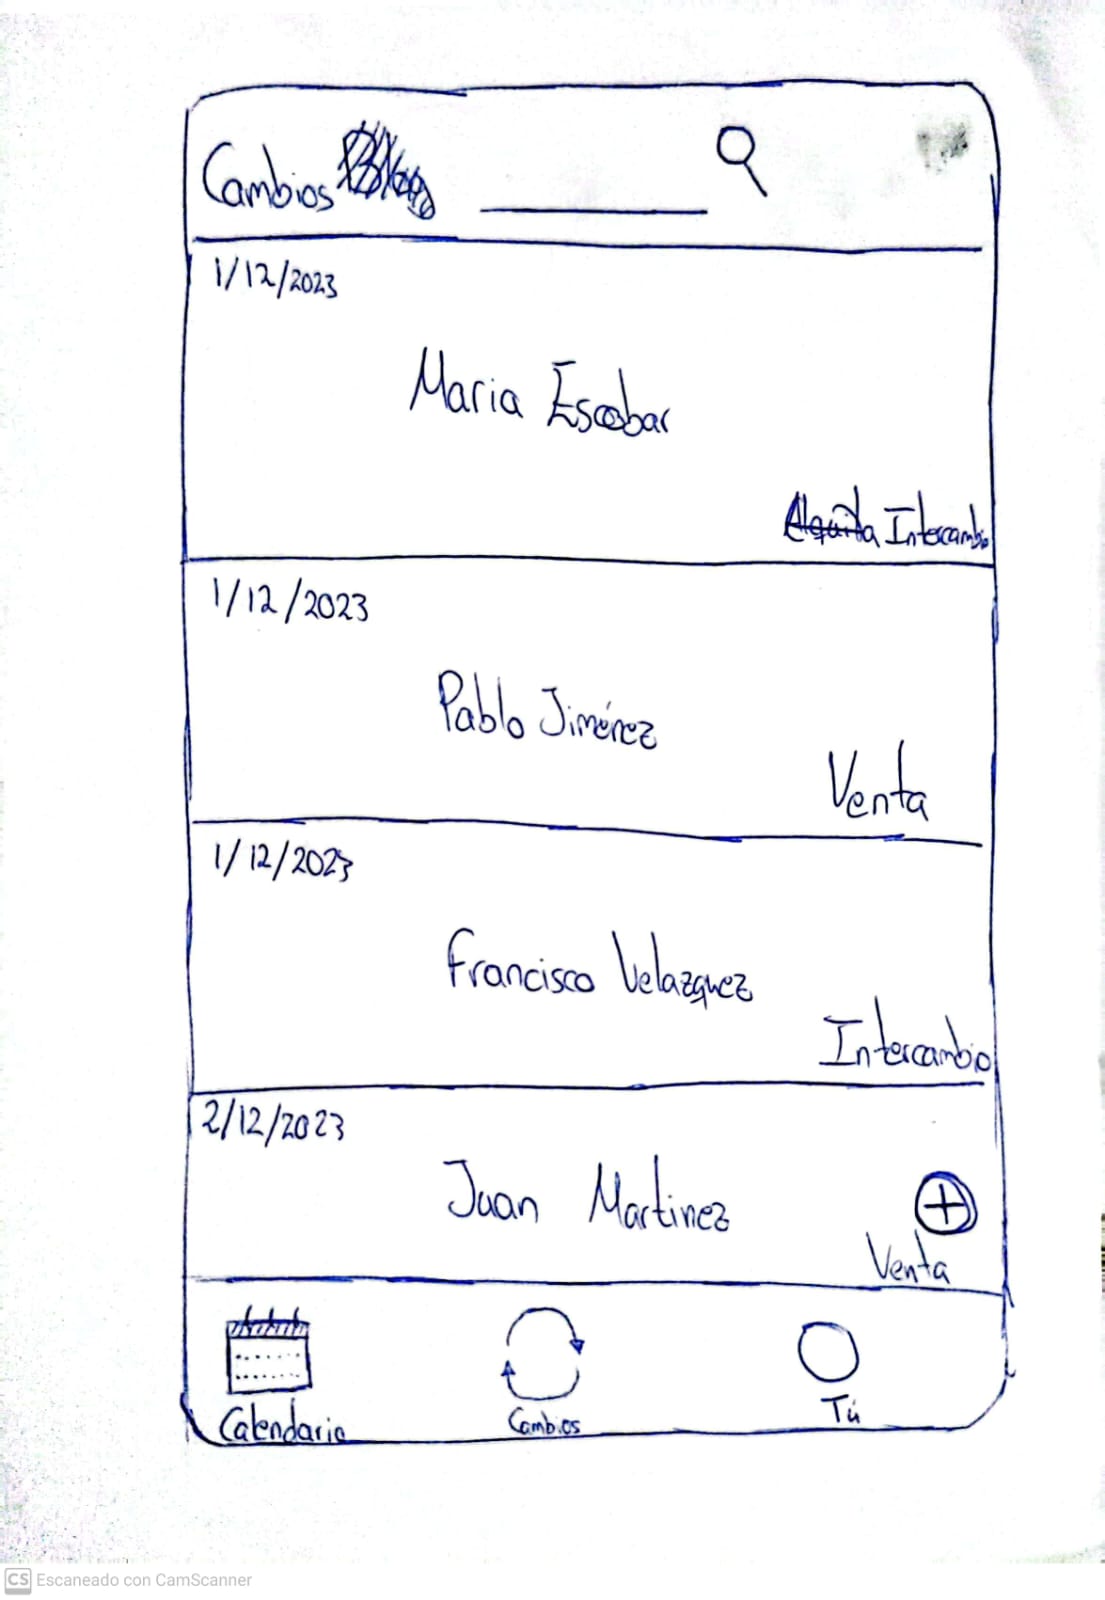 Cambios Blog
1/12/2023
Maria Escobar
Alquila Intercambio
1/12/2023
Pablo Jiménez
Venta
1/12/2023
Francisco Velazquez
Intercambio
2/12/2023
Juan Martinez
Venta
Calendario Cambios Tú
CS Escaneado con CamScanner